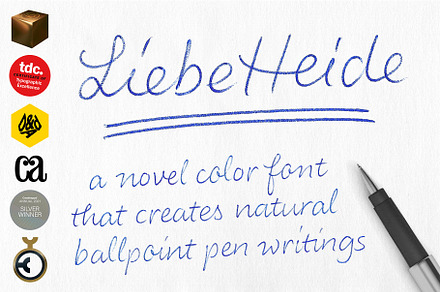 LiebeHeide
a novel color font
that creates natural
ballpoint pen writings
tdc.
Typographic
Excellence
ca
SILVER
WINNER